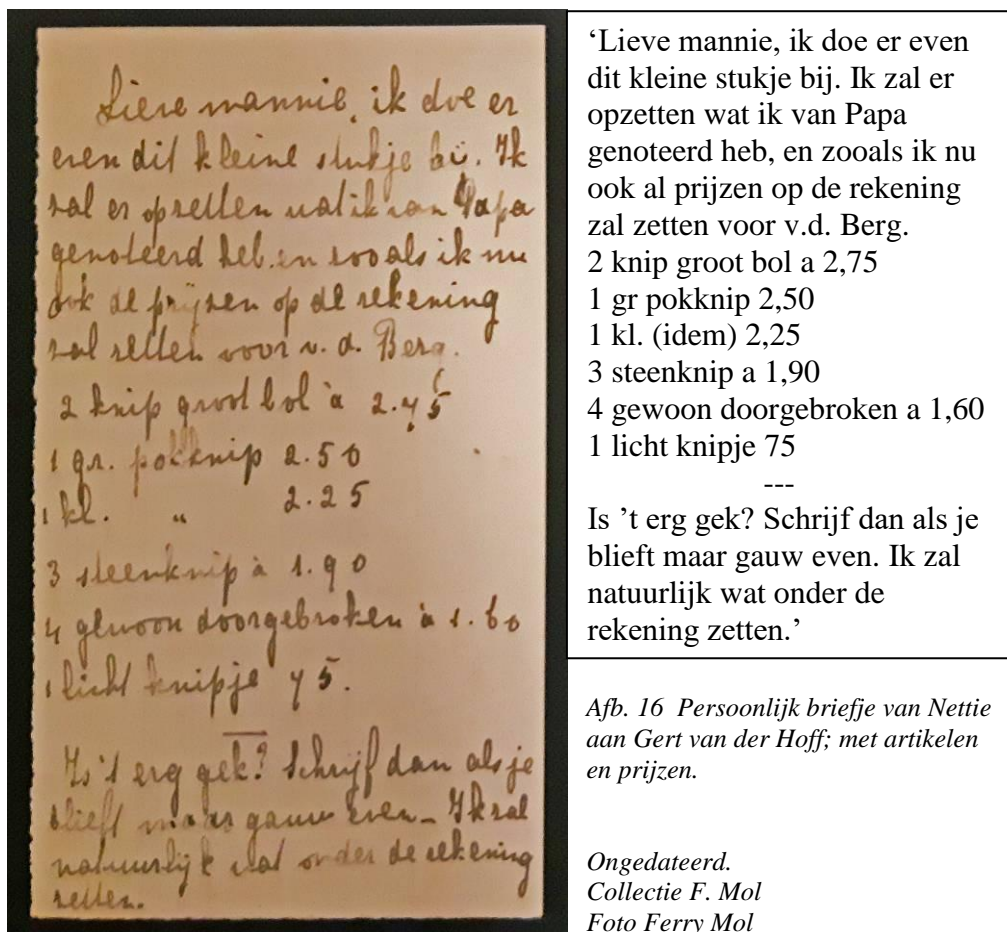 Lieve mannie, ik doe er
even dit kleine stukje bij. Ik
zal er opzetten wat ik van Papa
genoteerd heb. en zooals ik nu
ook de prijzen op de rekening
zal zetten voor v. d. Berg.
2 knip groot bol à 2.75
1 gr. pokknip 2.50
1 kl. " 2.25
3 steenknip à 1.90
4 gewoon doorgebroken à 1.60
1 licht knipje 75.
Is 't erg gek? Schrijf dan als je
blieft maar gauw even – Ik zal
natuurlijk wat onder de rekening
zetten.
‘Lieve mannie, ik doe er even
dit kleine stukje bij. Ik zal er
opzetten wat ik van Papa
genoteerd heb, en zooals ik nu
ook al prijzen op de rekening
zal zetten voor v.d. Berg.
2 knip groot bol a 2,75
1 gr pokknip 2,50
1 kl. (idem) 2,25
3 steenknip a 1,90
4 gewoon doorgebroken a 1,60
1 licht knipje 75
---
Is ’t erg gek? Schrijf dan als je
blieft maar gauw even. Ik zal
natuurlijk wat onder de
rekening zetten.’
Afb. 16 Persoonlijk briefje van Nettie
aan Gert van der Hoff; met artikelen
en prijzen.
Ongedateerd.
Collectie F. Mol
Foto Ferry Mol